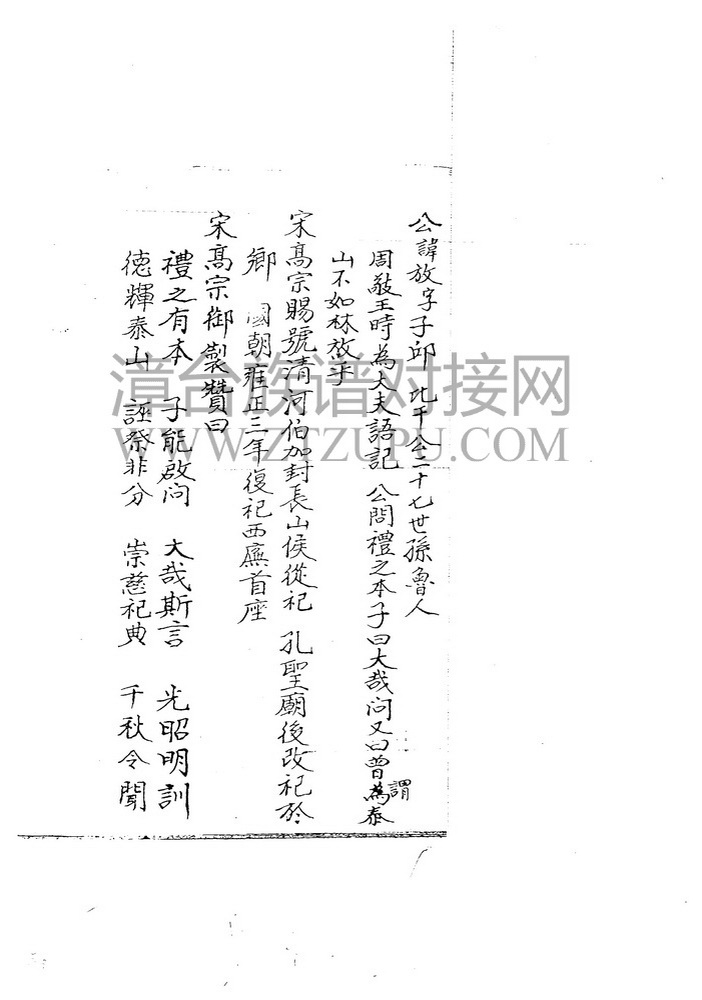 公諱放字子邱 比干公二十七世孫魯人
周敬王時為大夫語記 公問禮之本子曰大哉问又曰曾為泰
謂
山不如林放乎
宋髙宗賜號清河伯加封長山侯從祀 孔聖廟後改祀於
鄉 國朝雍正三年復祀西廡首座
宋髙宗御製贊曰
禮之有本 子能啟问 大哉斯言 光昭明訓
德輝泰山 誣祭非分 崇慈祀典 千秋令聞
漳台族谱对接网
WWW.ZTZUPU.COM